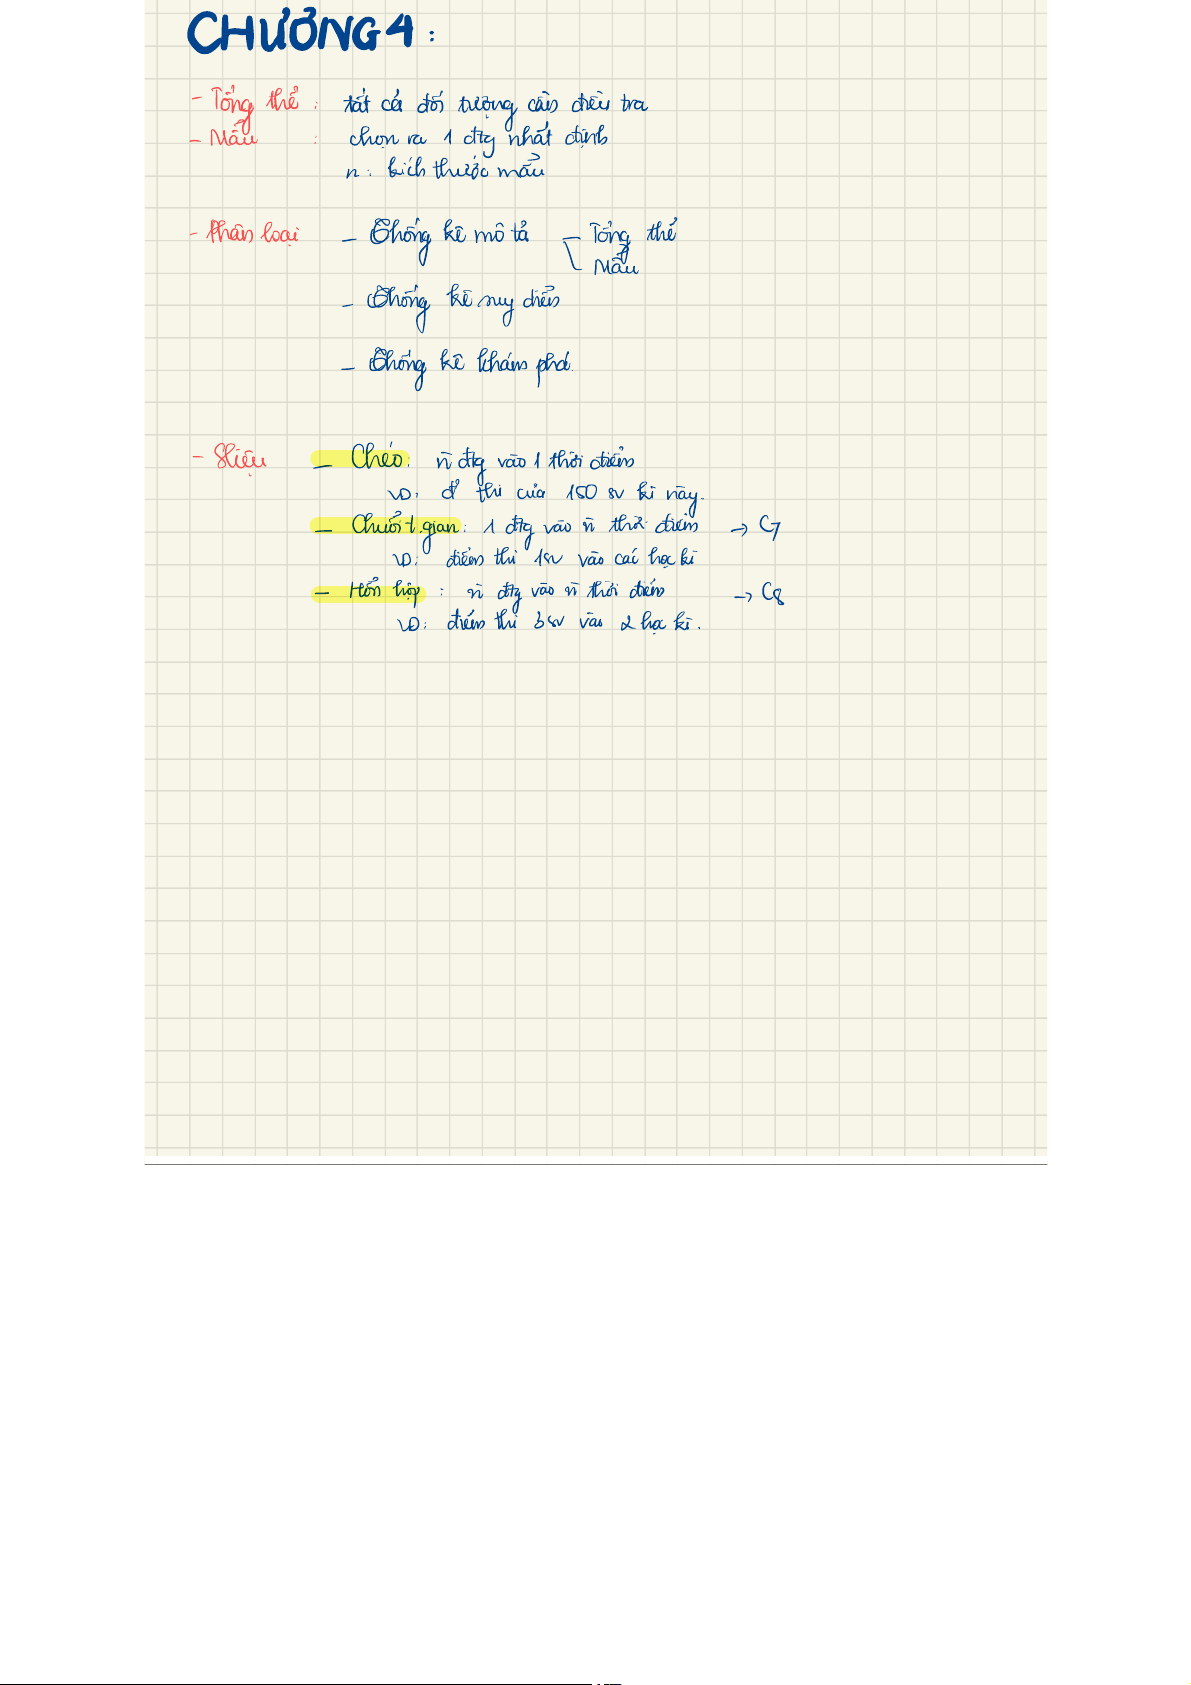 CHƯƠNG 4 :
- Tổng thể : tất cả đối tượng cần điều tra
- Mẫu : chọn ra 1 đtg nhất định
n : kích thước mẫu
- Phân loại - Thống kê mô tả - Tổng thể
Mẫu
- Thống kê suy diễn
- Thống kê khám phá.
- Sliệu - Chéo : n̄ đtg vào 1 thời điểm
VD : đ' thi của 150 sv kì này.
- Chuỗi t.gian : 1 đtg vào n̄ thời điểm → C7
VD : điểm thi 1sv vào các học kì
- Hỗn hợp : n̄ đtg vào n̄ thời điểm → C8
VD : điểm thi 3 sv vào 2 học kì .